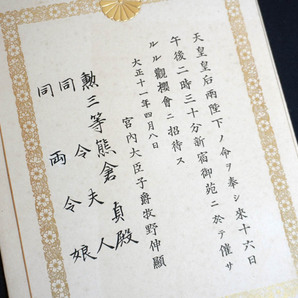 天皇皇后兩陛下ノ命ヲ奉シ來十六日
午後二時三十分新宿御苑ニ於テ催サ
ルル觀櫻會ニ招待ス
大正十一年四月八日
宮内大臣子爵牧野伸顯
勲三等熊倉貞殿
同令夫人
同両令娘